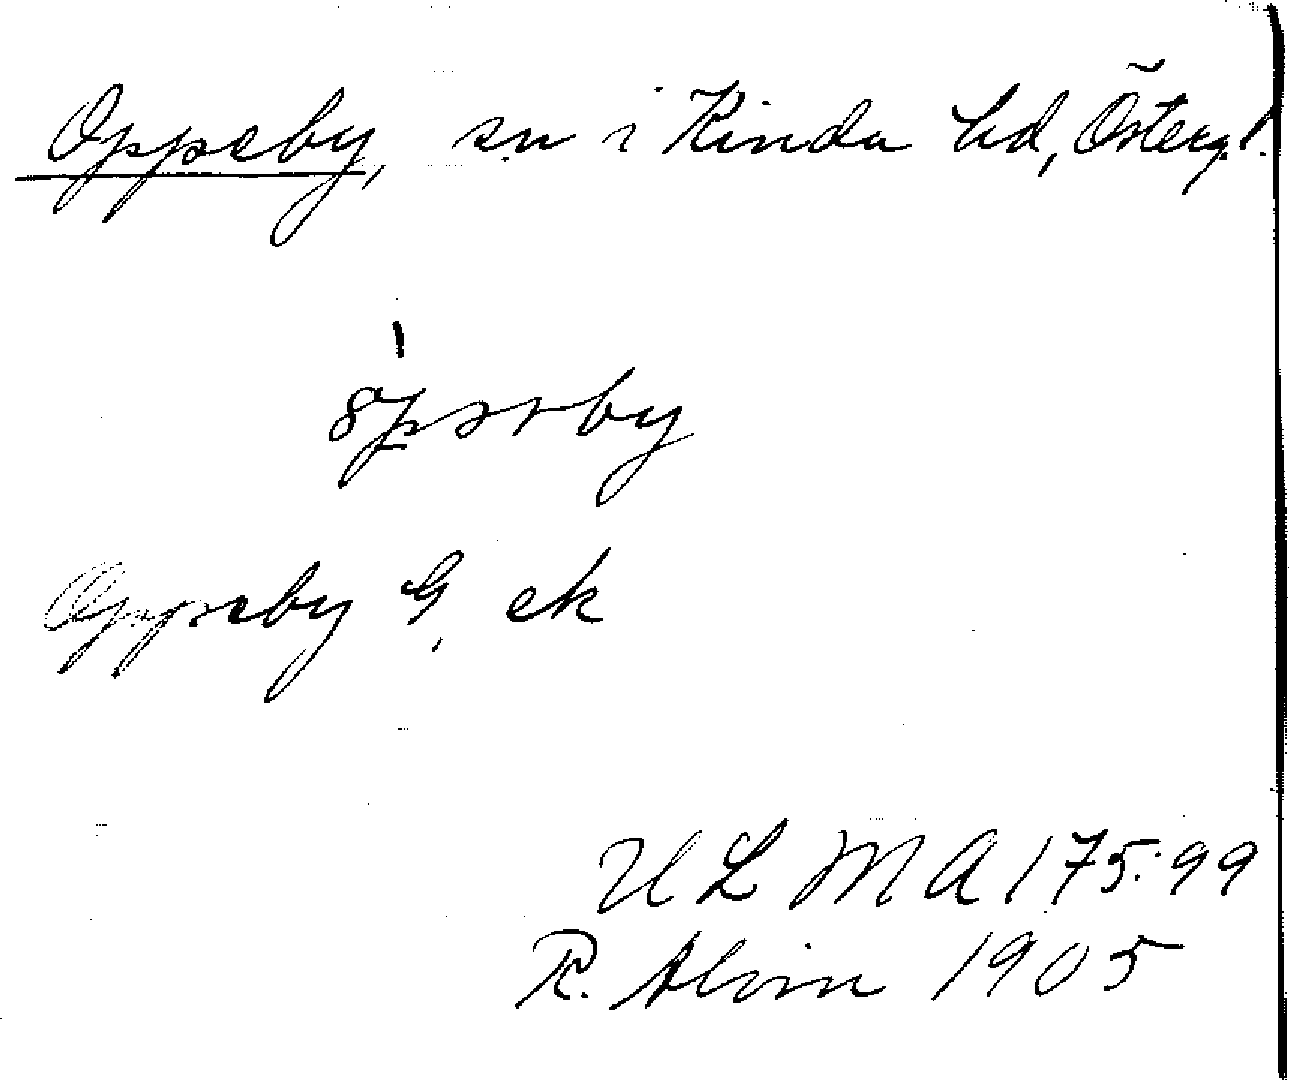 Oppeby, sn i Kinda hd, Östergl.
Oppeby G, ek
ULMA 175:99
R. Alvin 1905